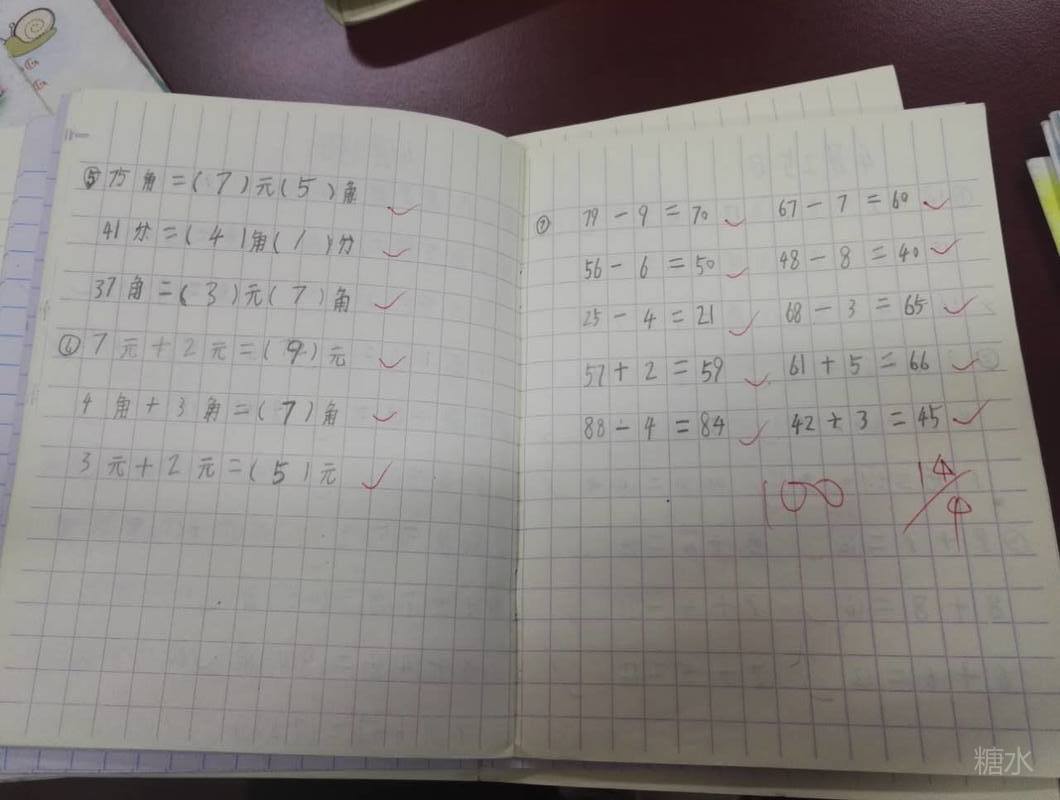 ⑤ 75角=(7)元(5)角
41分=(4)角(1)分
37角=(3)元(7)角
⑥ 7元+2元=(9)元
4角+3角=(7)角
3元+2元=(5)元
⑦ 79-9=70 67-7=60
56-6=50 48-8=40
25-4=21 68-3=65
57+2=59 61+5=66
88-4=84 42+3=45
100
糖水